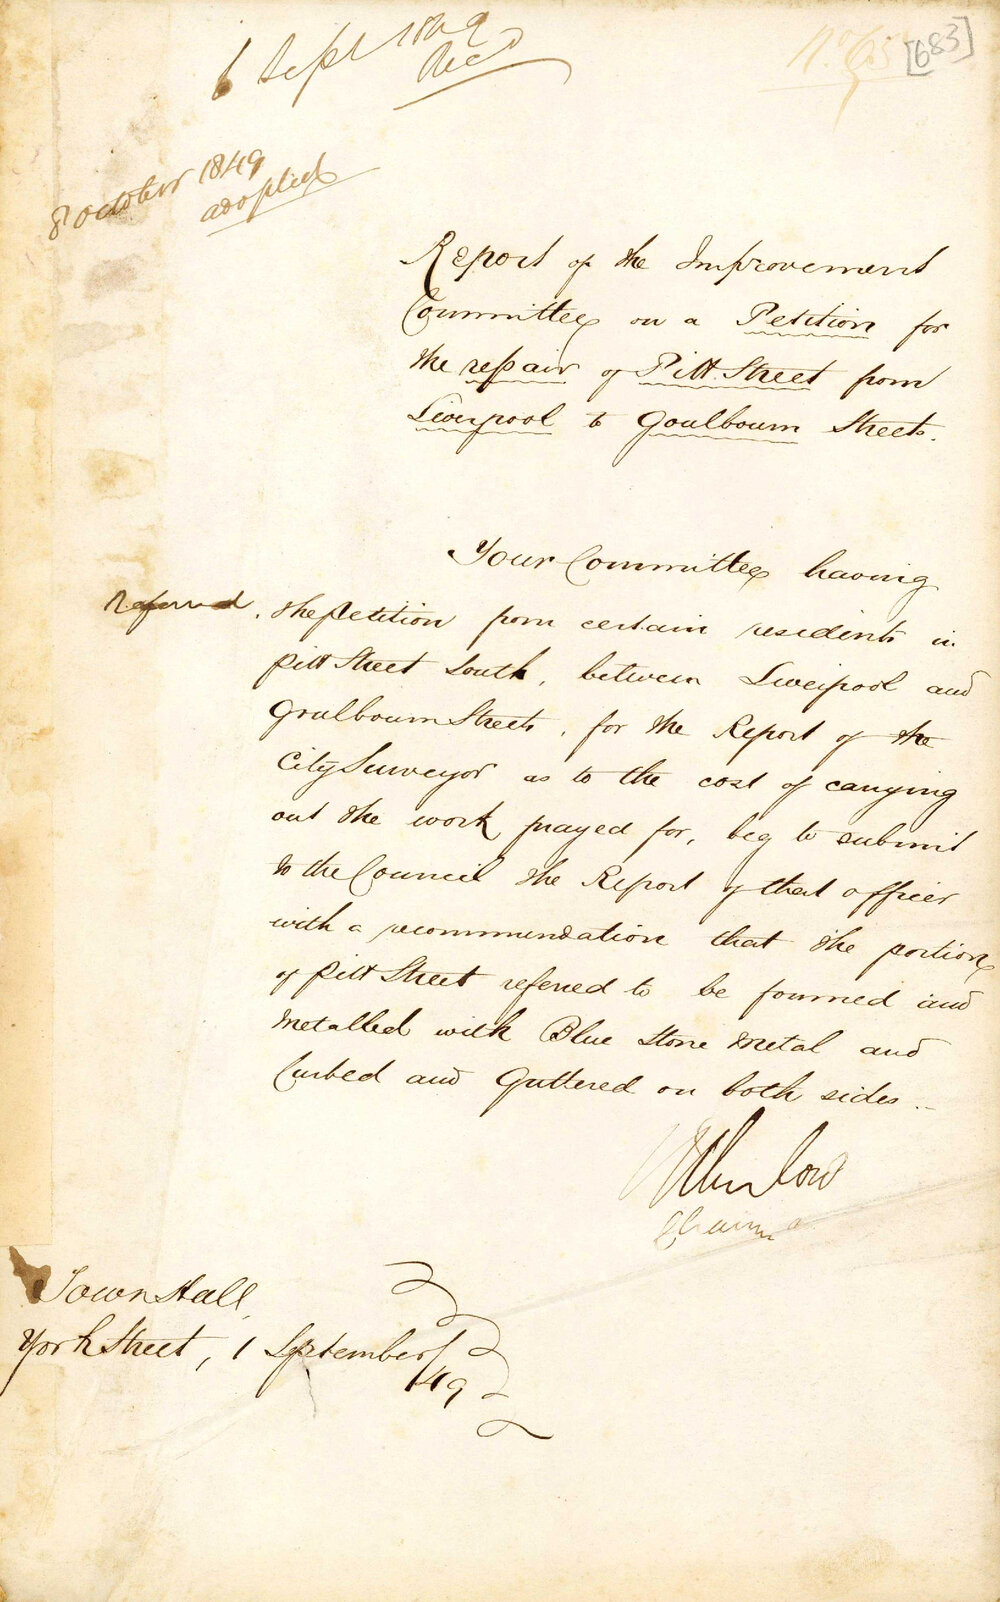 6 Sept 1849
Recd
[683]
8 October 1849
adopted
Report of the Improvement
Committee on a Petition for
the repair of Pitt Street from
Liverpool to Goulbourn Streets.
Your Committee having
Referred, the Petition from certain residents in
Pitt Street South, between Liverpool and
Goulbourn Streets, for the Report of the
City Surveyor as to the cost of carrying
out the work prayed for, beg to submit
to the Council the Report of that officer
with a recommendation that the portion
of Pitt Street referred to be formed and
Metalled with Blue Stone Metal and
Curbed and Guttered on both sides..
Chairman
Town Hall,
York Street, 1 September/
49